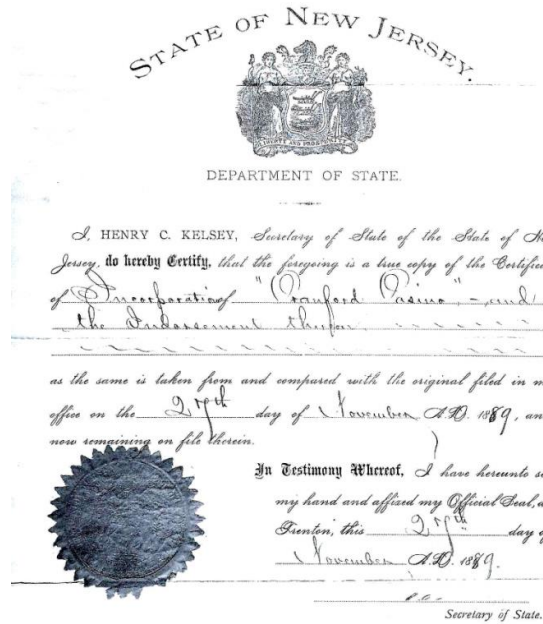 STATE OF NEW JERSEY.
LIBERTY AND PROSPERITY
DEPARTMENT OF STATE.
I, HENRY C. KELSEY, Secretary of State of the State of Ne
Jersey, do hereby Certify, that the foregoing is a true copy of the Certific
of Incorporation of "Cranford Casino" - and
the Indorsement thereon
as the same is taken from and compared with the original filed in m
office on the 27th day of November A.D. 1889, an
now remaining on file therein.
In Testimony Whereof, I have hereunto s
my hand and affixed my Official Seal, a
Trenton, this 27th day o
November A.D. 1889.
Secretary of State.